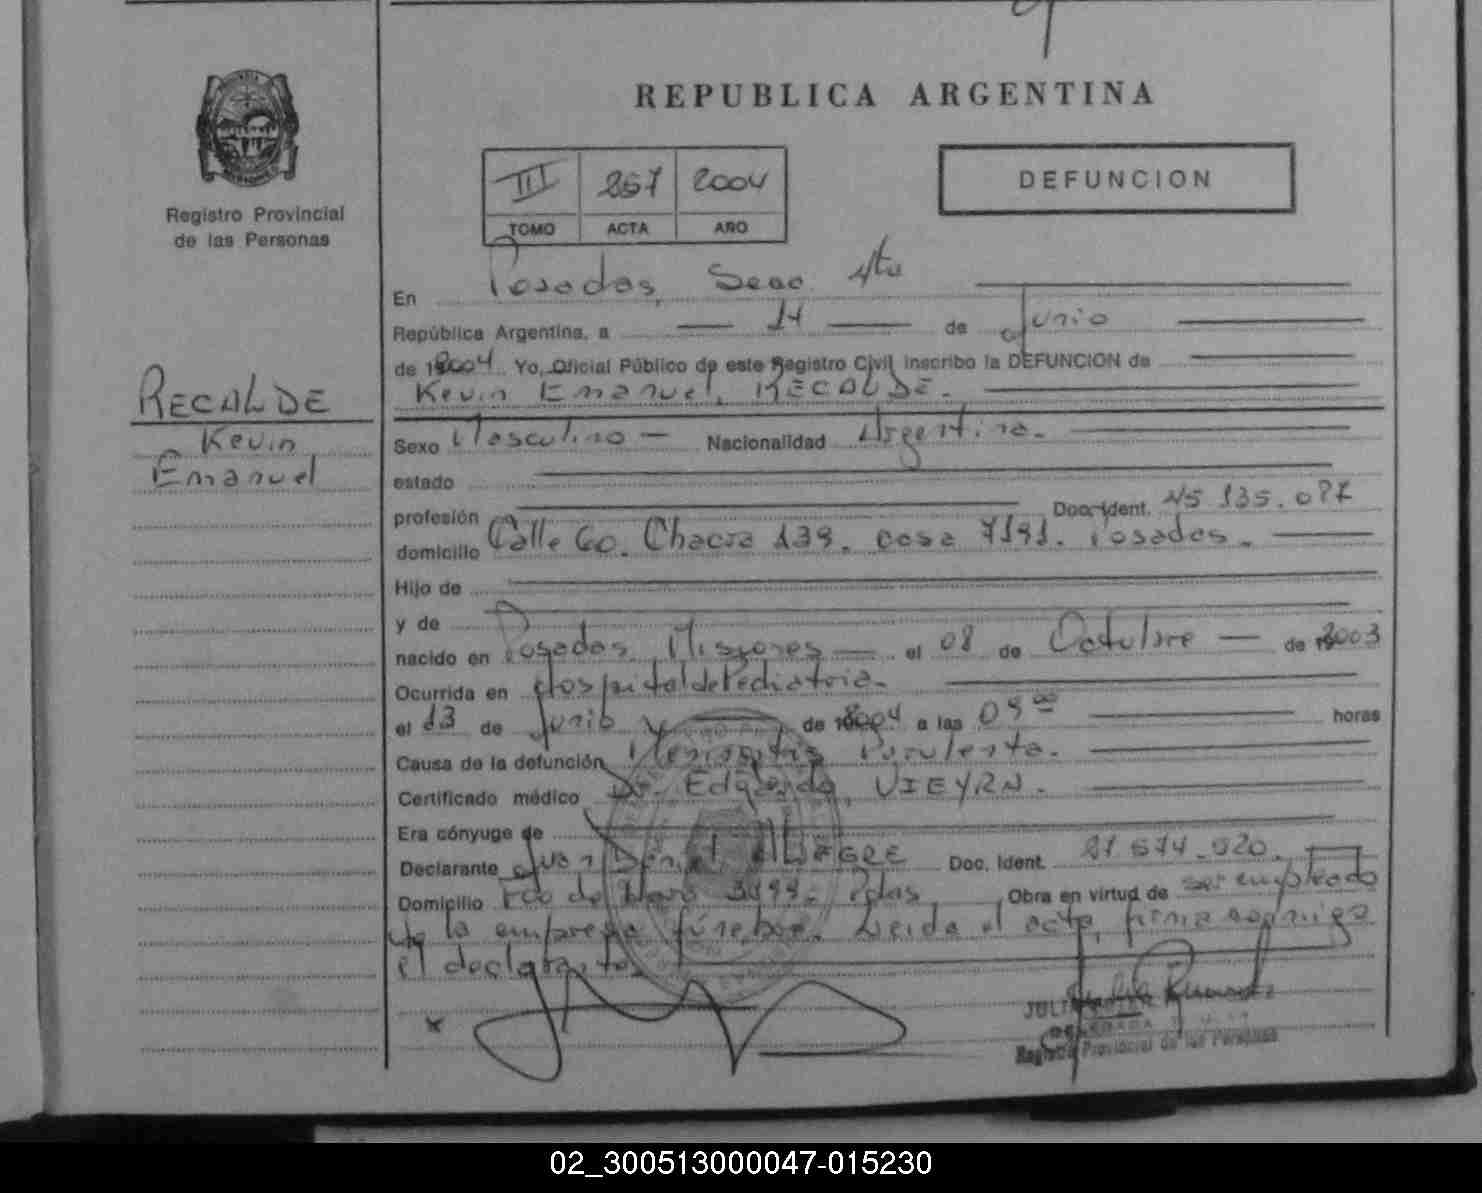 REPUBLICA ARGENTINA
Registro Provincial
de las Personas
III 257 2004
TOMO ACTA AÑO
DEFUNCION
RECALDE
Kevin
Emanuel
En Posadas, Secc. 4ta
República Argentina, a 14 de Junio
de 2004 Yo, Oficial Público de este Registro Civil inscribo la DEFUNCION de
Kevin Emanuel, RECALDE.
Sexo Masculino Nacionalidad Argentina.
estado
profesión Doc. Ident. 45.135.087
domicilio Calle 60. Chacra 139. casa 7191. Posadas.
Hijo de
y de
nacido en Posadas Misiones el 08 de Octubre de 2003
Ocurrida en Hospital de Pediatria.
el 13 de Junio de 2004 a las 09 00 horas
Causa de la defunción Meningitis Purulenta.
Certificado médico Dr. Edgardo, VIEYRA.
Era cónyuge de
Declarante Juan ALEGRE Doc. Ident. 21.574.520.
Domicilio Pdas. Obra en virtud de ser empleado
de la empresa fúnebre. Leida el acta, firma conmigo
el declarante.
Registro Provincial de las Personas
02_300513000047-015230